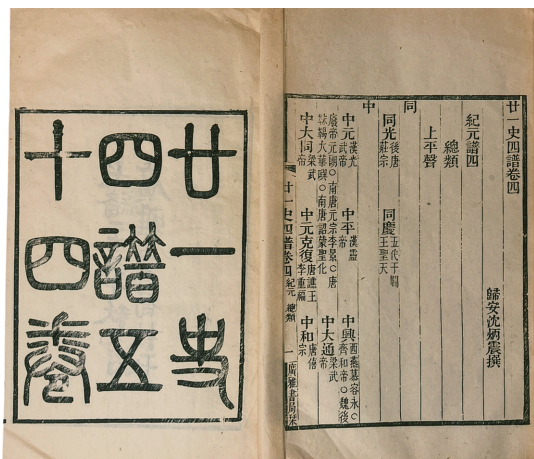 廿一史四譜卷四
歸安沈炳震撰
紀元譜四
總類
上平聲
同
同光 後唐莊宗 同慶 五代于闐王聖天
中
中元 漢光武帝 中平 漢靈帝 中興 西燕慕容永○齊和帝○魏後
廢帝元朗○南唐元宗李景○唐
中大通 梁武帝
中大同 梁武帝 中元克復 唐譙王李重福 中和 唐僖宗
廿一史四譜卷四 紀元 總類 一 廣雅書局栞
廿一史
四譜五
十四卷